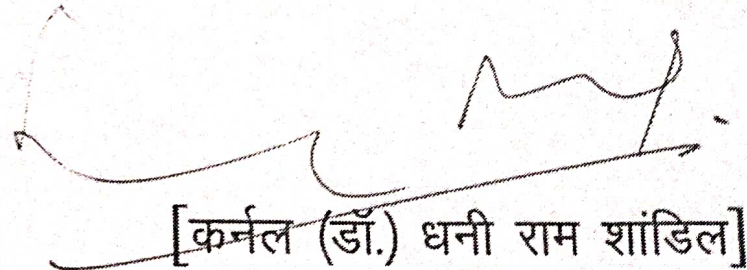 [कर्नल (डॉ.) धनी राम शांडिल]